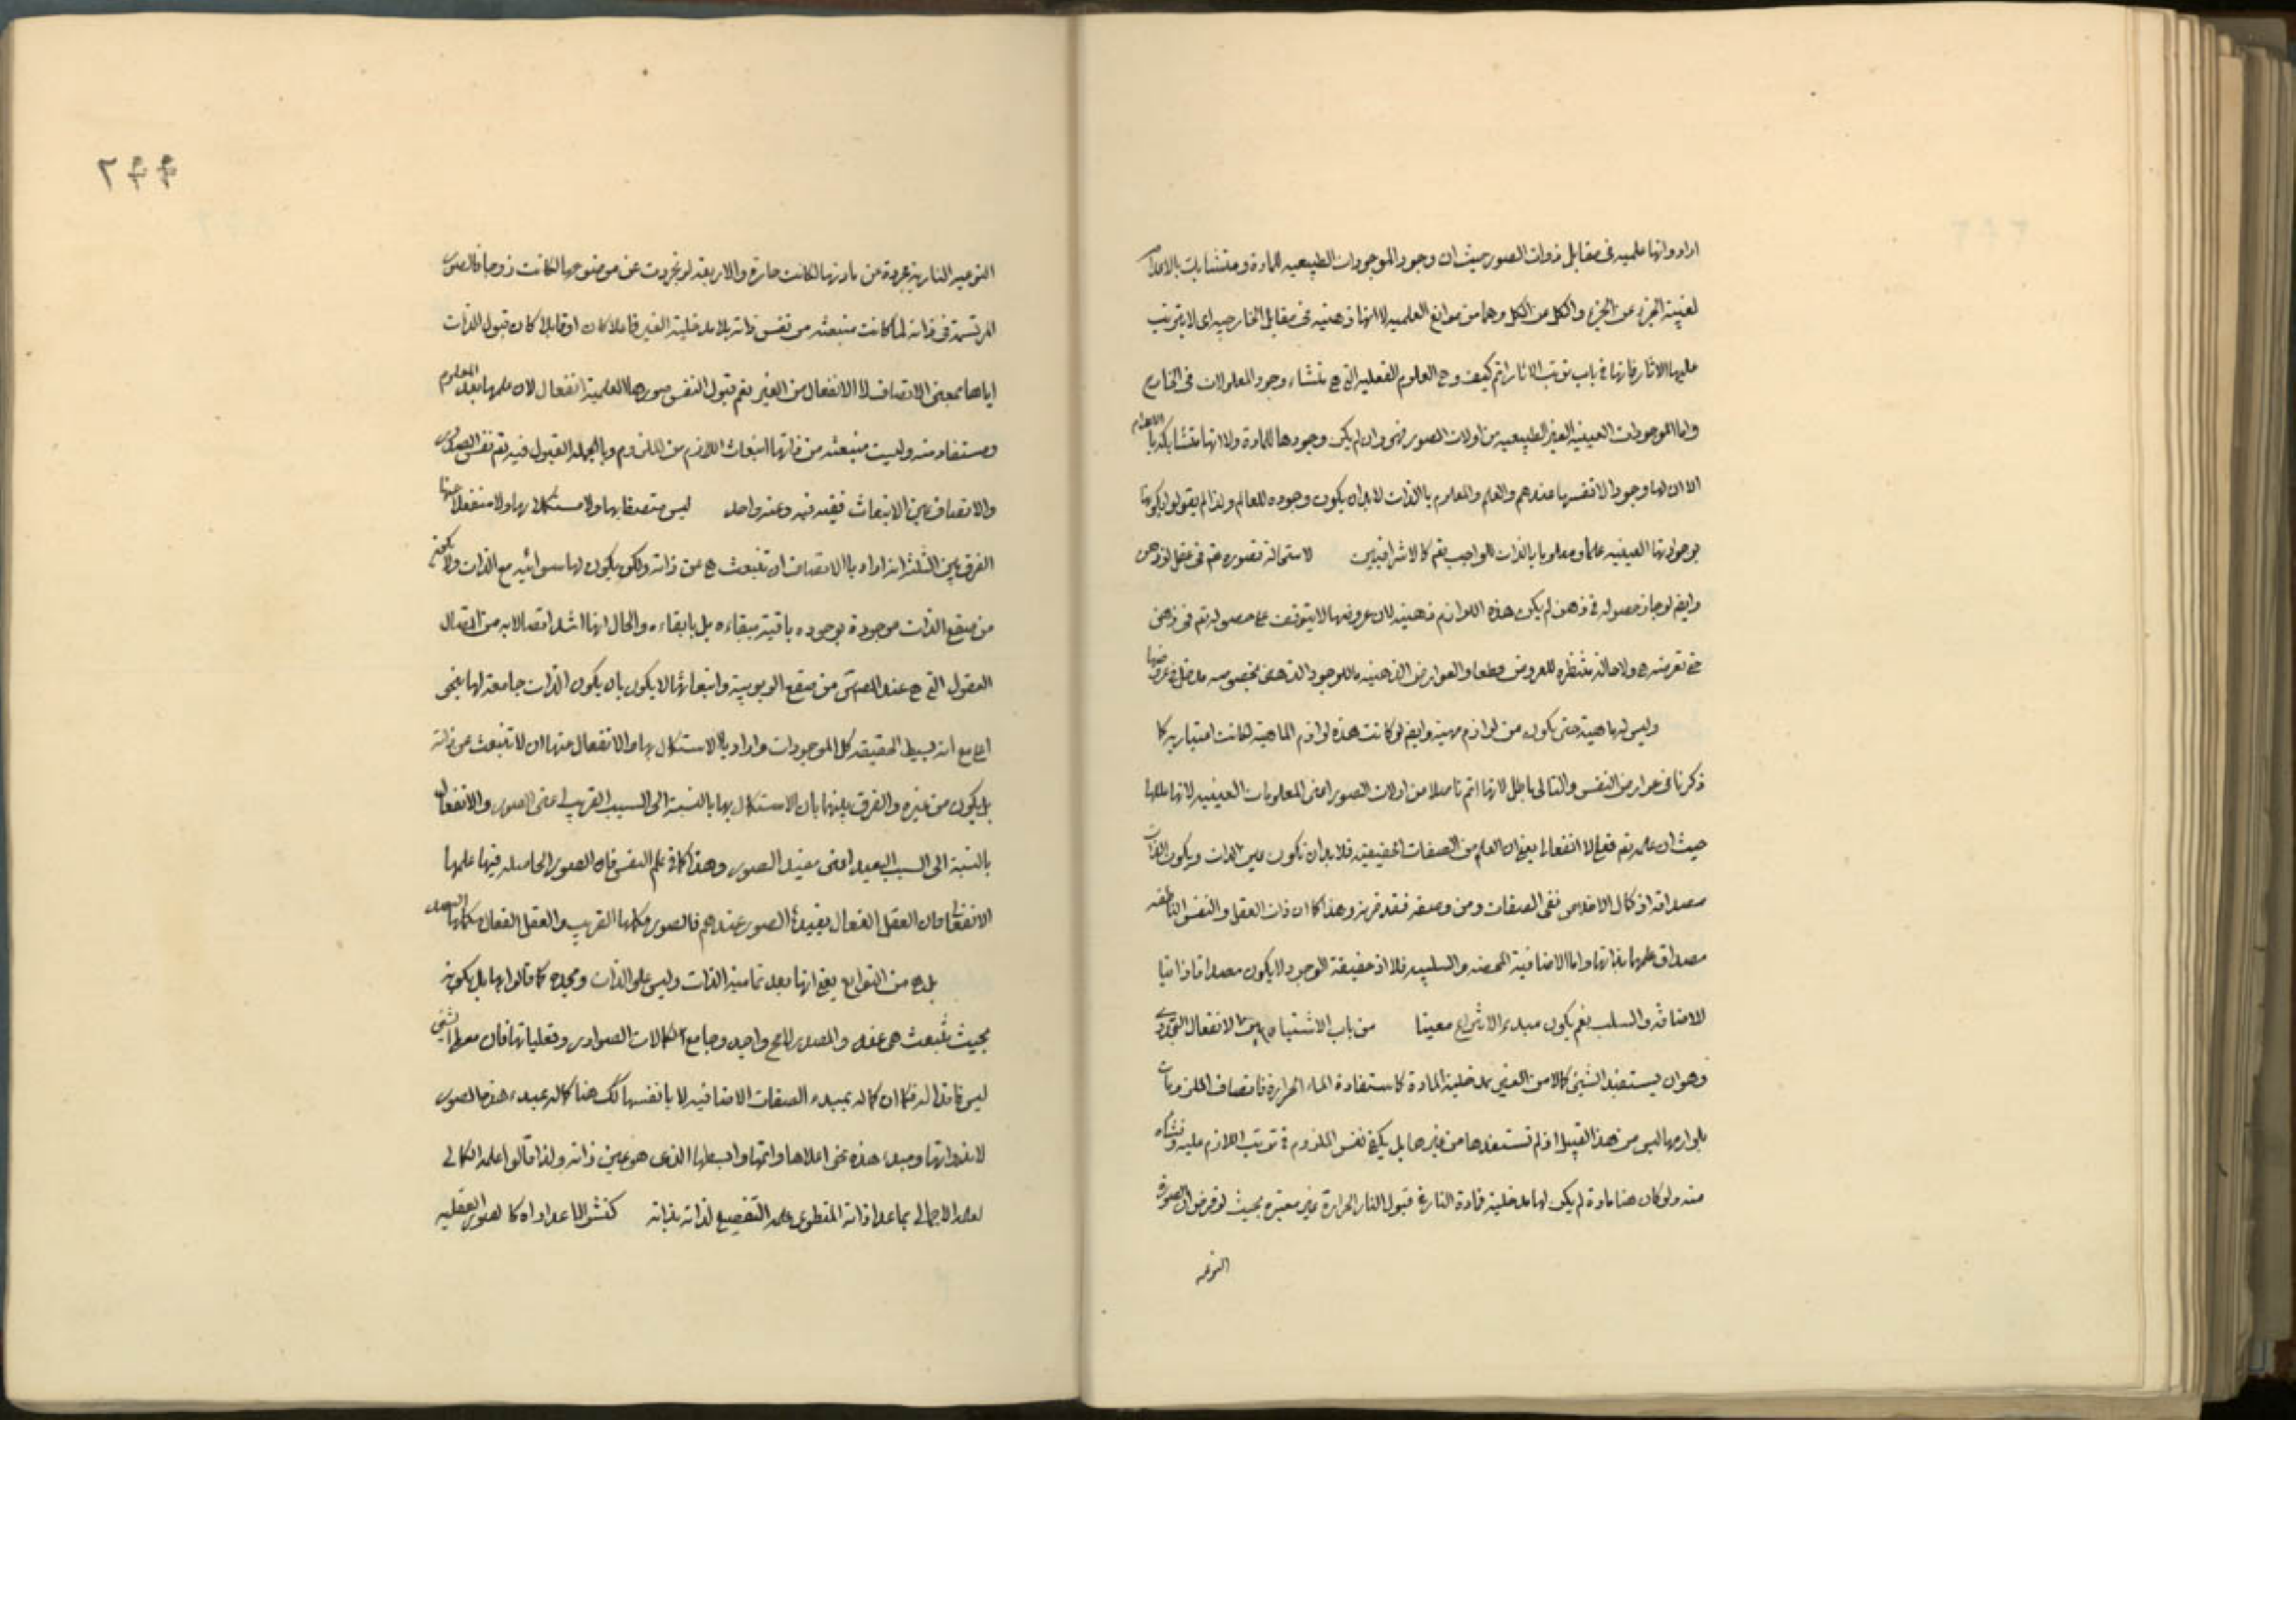 ارادوا انها علمية فى مقابل ذوات الصور حيث ان وجود الموجودات الطبيعيه للمادة ومتشابك بالاعدام
لغيبة الجزء عن الجزء والكل عن الكل وهما من موانع العلميه لا انها ذهنيه فى مقابل الخارجيه اى لا يترتب
عليها الاثار فانها فى باب ترتب الاثار اتم كيف وهى العلوم الفعليه التى هى منشاء وجود المعلولات فى الخارج
واما الموجودات العينيه الغير الطبيعيه من اولات الصور فهى وان لم يكن وجودها للمادة ولا انها متشابكة بالاعدام
الا ان لها وجودا لانفسها عندهم والعلم والمعلوم بالذات لابد ان يكون وجوده للعالم ولذا لم يقولوا بكونها
بوجوداتها العينيه علما ومعلوما بالذات للواجب تعم كالاشراقيين لاستحالة تصوره تعم فى عقل او ذهن
وايضم لو جاز حصوله فى ذهن لم يكن هذه اللوازم ذهنيه لان عروضها لا يتوقف على حصوله تعم فى ذهن
حتى تعرضه هى ولا حالة منتظره للعروض قطعا والعوارض الذهنيه ما للوجود الذهنى بخصوصه مدخل فى عروضها
وليس لها ماهية حتى يكون من لوازم مهيته وايضم لو كانت هذه لوازم الماهية لكانت اعتباريه كما
ذكرنا فى عوارض النفس والتالى باطل لانها اتم تاصلا من اولات الصور اعنى المعلومات العينيه لانها عللها
حيث ان علمه تعم فعلى لا انفعالى يعنى ان العلم من الصفات الحقيقيه فلابد ان تكون عين الذات ويكون الذات
مصداقه اذ كمال الاخلاص نفى الصفات ومن وصفه فقد قرنه وهذا كما ان ذات العقل والنفس الناطقه
مصداق علمها بذاتها واما الاضافية المحضه والسلبيه فلا اذ حقيقة الوجود لا يكون مصداقا ذاتيا
للاضافه والسلب نعم يكون مبدء الانتزاع معينا من باب الاشتباه بين الانفعال التجددى
وهو ان يستفيد الشيئ كمالا من الغير بمدخلية المادة كاستفادة الماء الحرارة فاتصاف الملزومات
بلوازمها ليس من هذا القبيل اذ لم تستفدها من غيرها بل يكفى نفس الملزوم فى ترتب اللازم عليه ونشاه
منه ولو كان هنا مادة لم يكن لها مدخلية فمادة النار فى قبول النار الحرارة غير معتبره بحيث لو فرض ان الصورة
النوعيه
٦٩٩
النوعيه الناريه مجردة عن مادتها لكانت حارة والاربعه لو تجردت عن موضوعها لكانت زوجا فالصور
المرتسمة فى ذاته لما كانت منبعثه من نفس ذاته بلا مدخلية الغير فاعلا كان او قابلا كان قبول الذات
اياها بمعنى الاتصاف لا الانفعال من الغير نعم قبول النفس صورها العلمية انفعال لان علمها بعد المعلوم
ومستفاد منه وليست منبعثه من ذاتها انبعاث اللازم من الملزوم وبالجمله القبول فيه تعم نفس الصدور
والاتصاف عين الانبعاث ففيه فيه وعنه واحد ليس متصفا بها ولا مستكملا بها ولا منفعلا عنها
الفرق بين الثلثة انه اراد بالاتصاف ان تنبعث هى عن ذاته ولكن يكون لها سوائيه مع الذات ولا تكون
من صقع الذات موجودة بوجوده باقية ببقاءه بل بابقاءه والحال انها اشد اتصالا به من اتصال
العقول التى هى عند المص من صقع الربوبية وانبعاثها لا يكون بان يكون الذات جامعه لها بنحو
اعلى مع انه بسيط الحقيقه كل الموجودات واراد بالاستكمال بها والانفعال عنها ان لا تنبعث من ذاته
بل يكون من غيره والفرق بينهما بان الاستكمال بها بالنسبة الى السبب القريب اعنى الصور والانفعال
بالنسبة الى السبب البعيد اعنى مفيد الصور وهذا كما فى علم النفس فان الصور الحاصله فيها علمها
الانفعالى فان العقل الفعال يفيد الصور عندهم فالصور مكملها القريب والعقل الفعال مكملها البعيد
بل هى من التوابع يعنى انها بعد تمامية الذات وليس علو الذات ومجده كما قالوا بها بل بكونه
بحيث تنبعث هى عنه والمصدر للكل واحد وجامع لكمالات الصوادر وفعلياتها فان معطى الشيئ
ليس فاقدا له فكما ان كماله بمبدء الصفات الاضافيه لا بانفسها كك هنا كماله بمبدء هذه الصور
لا بذواتها ومبدء هذه نحو اعلاها واتمها وابسطها الذى هو عين ذاته ولذا قالوا علمه الكمالى
لعلمه الاجمالى بما عدا ذاته المنطوى علمه التفصيلى لذاته بذاته كنشو الاعداد اه كما لصور العقليه